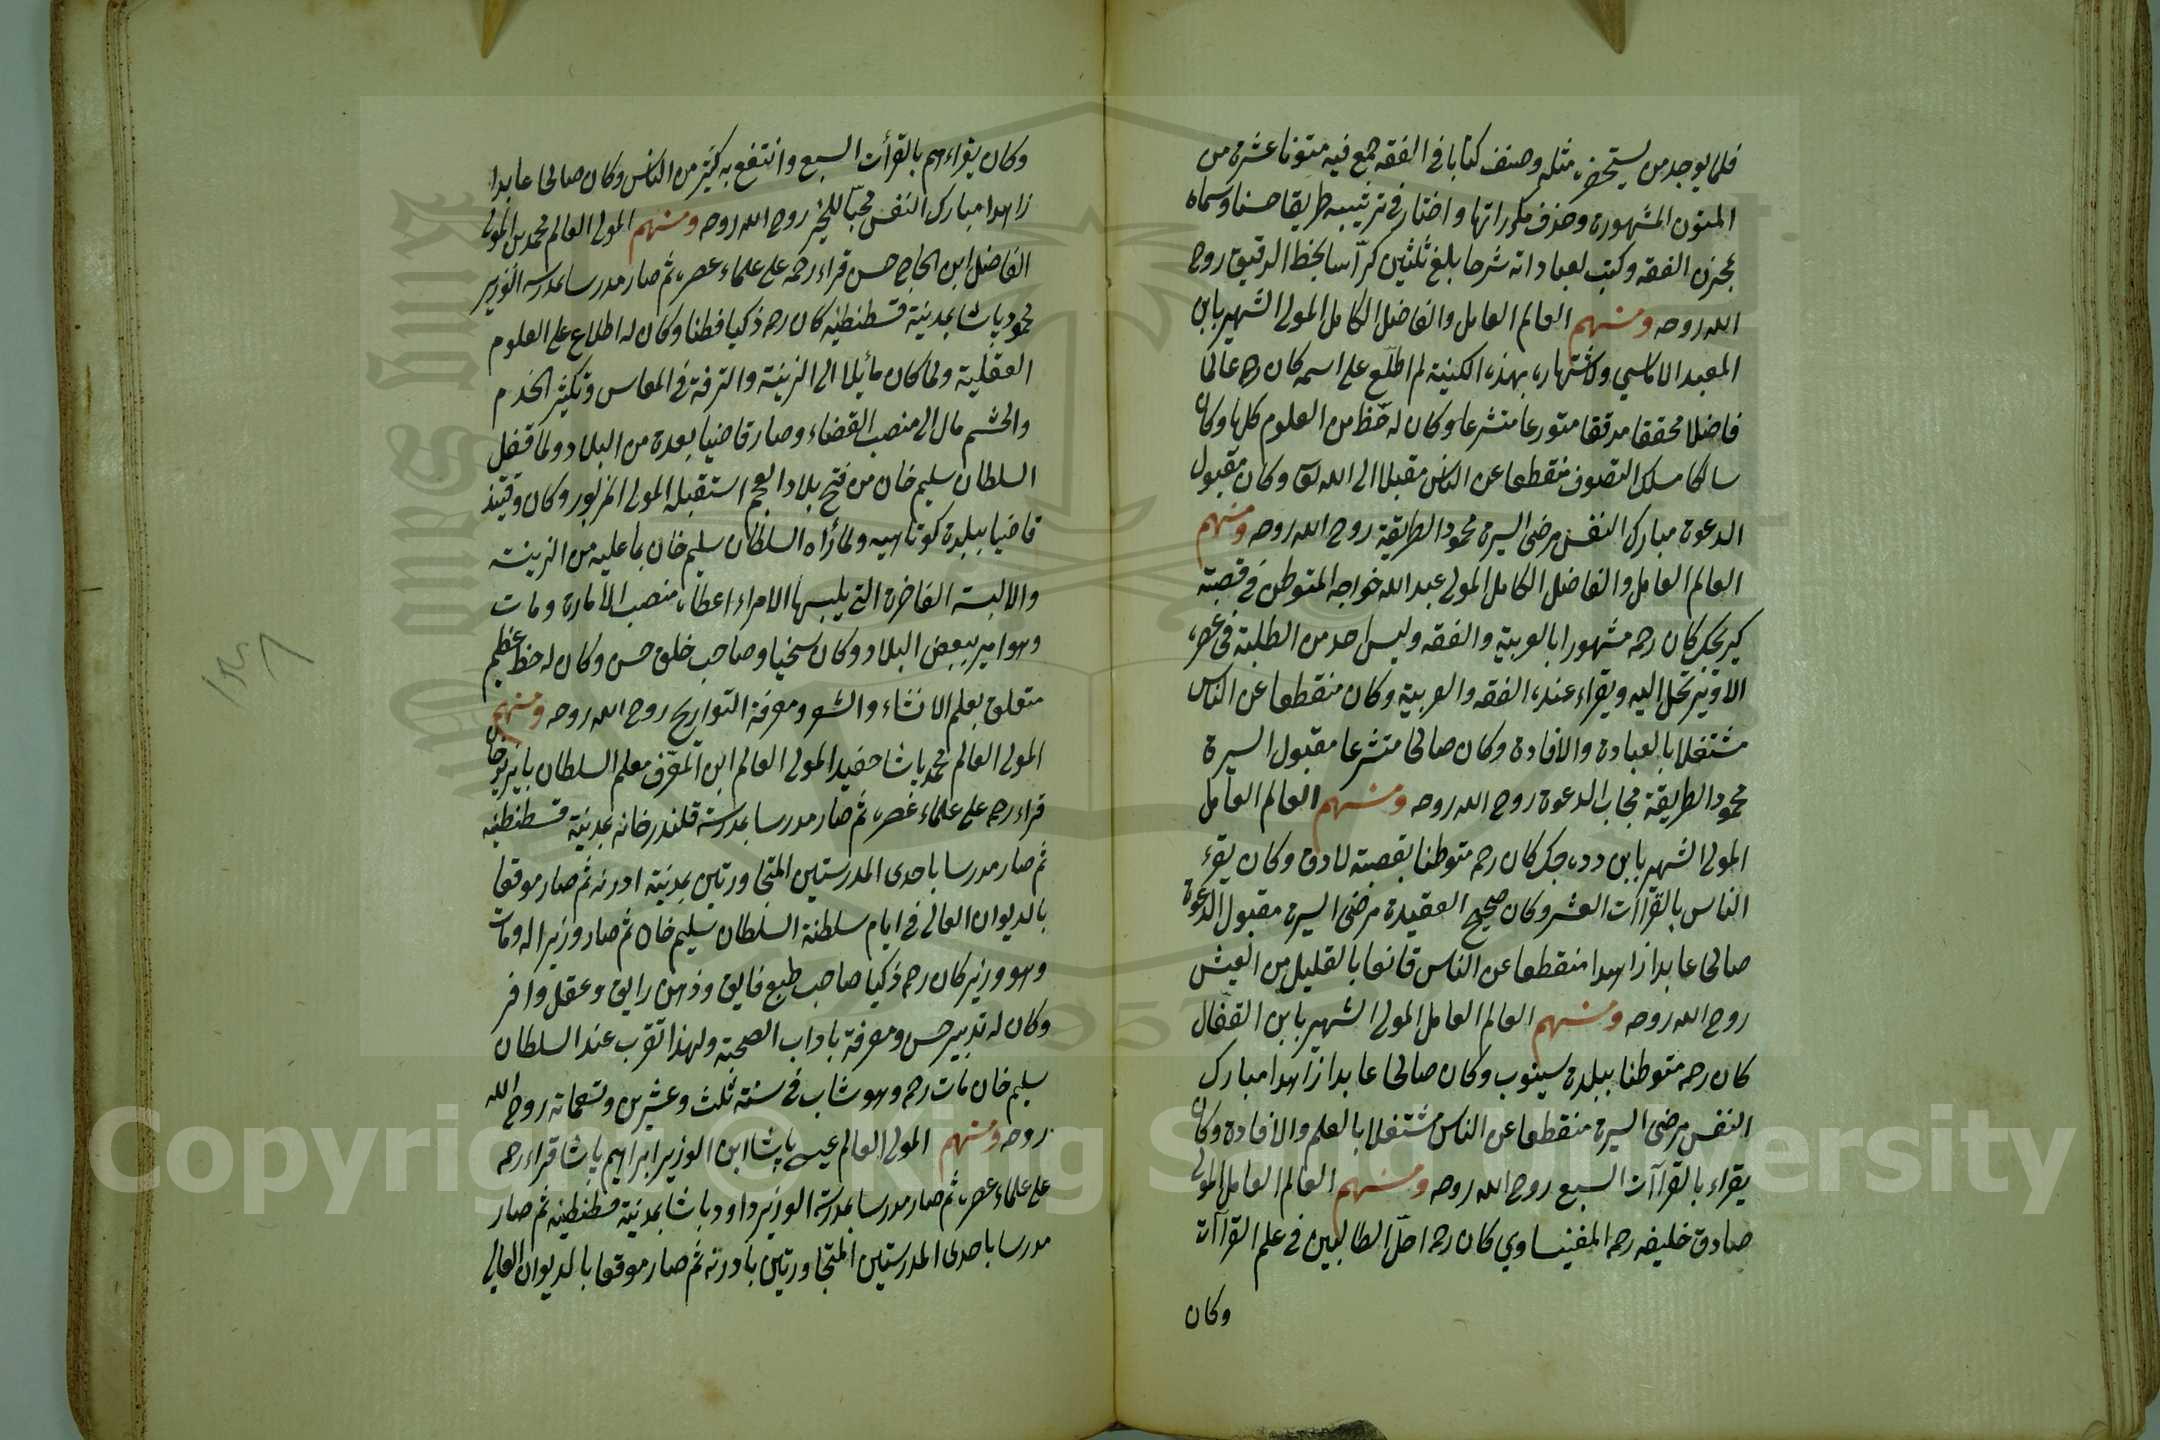 فلما يوجد من يستحضر مثله وصنف كتابا في الفقه جمع فيه متونا عشرة من
المتون المشهورة وحذف مكرراتها واختار في ترتيبه طريقا حسنا وسماه
بمخزن الفقه وكتب لعباداته شرحا بلغ ثلثين كراسا بالخط الدقيق روح
الله روحه ومنهم العالم العامل والفاضل الكامل المولى الشهير بابن
المعيد الاماسي ولاشتهاره بهذه الكنية لم اطلع على اسمه كان رحه عالما
فاضلا محققا مدققا متورعا متشرعا وكان له حظ من العلوم كلها وكان
سالكا مسلك التصوف منقطعا عن الناس مقبلا الى الله تعا وكان مقبول
الدعوة مبارك النفس مرضى السيرة محمود الطريقة روح الله روحه ومنهم
العالم العامل والفاضل الكامل المولى عبد الله خواجه المتوطن في قصبة
كبريجك كان رحه مشهورا بالعربية والفقه وليس احد من الطلبة في عصره
الا وقد يرتحل اليه ويقراء عنده الفقه والعربية وكان منقطعا عن الناس
مشتغلا بالعبادة والافادة وكان صالحا متشرعا مقبول السيرة
محمود الطريقة مجاب الدعوة روح الله روحه ومنهم العالم العامل
المولى الشهير بابن دده جك كان رحه متوطنا بقصبة لادق وكان يقرء
الناس بالقراآت العشر وكان صحيح العقيدة مرضى السيرة مقبول الدعوة
صالحا عابدا زاهدا منقطعا عن الناس قانعا بالقليل من العيش
روح الله روحه ومنهم العالم العامل المولى الشهير بابن القفال
كان رحه متوطنا ببلدة سينوب وكان صالحا عابدا زاهدا مبارك
النفس مرضى السيرة منقطعا عن الناس مشتغلا بالعلم والافادة وكان
يقراء بالقراآت السبع روح الله روحه ومنهم العالم العامل المولى
صادق خليفه رحه المغنيساوي كان رحه احل الطالبين في علم القراآت
وكان
وكان يقراءهم بالقرأت السبع وانتفع به كثير من الناس وكان صالحا عابدا
زاهدا مبارك النفس محبا للخير روح الله روحه ومنهم المولى العالم محمد بن المولى
الفاضل ابن الحاج حسن قراء رحه على علماء عصره ثم صار مدرسا بمدرسه الوزير
محمود باشا بمدينة قسطنطنيه كان رحه ذكيا فطنا وكان له اطلاع على العلوم
العقلية ولما كان مائيلا الى الزينة والترفه في المعاس وتكثير الخدم
والحشم مال الى منصب القضاء وصار قاضيا بعدة من البلاد ولما قفل
السلطان سليم خان من فتح بلاد العجم استقبله المولى المزبور وكان وقتئذ
قاضيا ببلدة كوتاهيه ولما رأه السلطان سليم خان بما عليه من الزينة
والالبسة الفاخرة التي يلبسها الامراء اعطاه منصب الامارة ومات
وهو امير ببعض البلاد وكان سخيا وصاحب خلق حسن وكان له حظ عظيم
متعلق بعلم الانشاء والشعر ومعرفة التواريخ روح الله روحه ومنهم
المولى العالم محمد باشا حفيد المولى العالم ابن المعرف معلم السلطان بايزيد خان
قراء رحه على علماء عصره ثم صار مدرسا بمدرسة قلندرخانه بمدينة قسطنطنيه
ثم صار مدرسا باحدى المدرستين المتجاورتين بمدينة ادرنه ثم صار موقعا
بالديوان العالي في ايام سلطنة السلطان سليم خان ثم صار وزيرا له ومات
وهو وزير كان رحه ذكيا صاحب طبع فايق وذهن رايق وعقل وافر
وكان له تدبير حسن ومعرفة باداب الصحبة ولهذا تقرب عند السلطان
سليم خان مات رحه وهو شاب في سنة ثلث وعشرين وتسعماته روح الله
روحه ومنهم المولى العالم عيسى باشا ابن الوزير ابراهيم باشا قراء رحه
على علماء عصره ثم صار مدرسا بمدرسة الوزير داود باشا بمدينة قسطنطنيه ثم صار
مدرسا باحدى المدرستين المتجاورتين بادرنه ثم صار موقعا بالديوان العالي
Copyright © King Saud University
King Saud University
1957